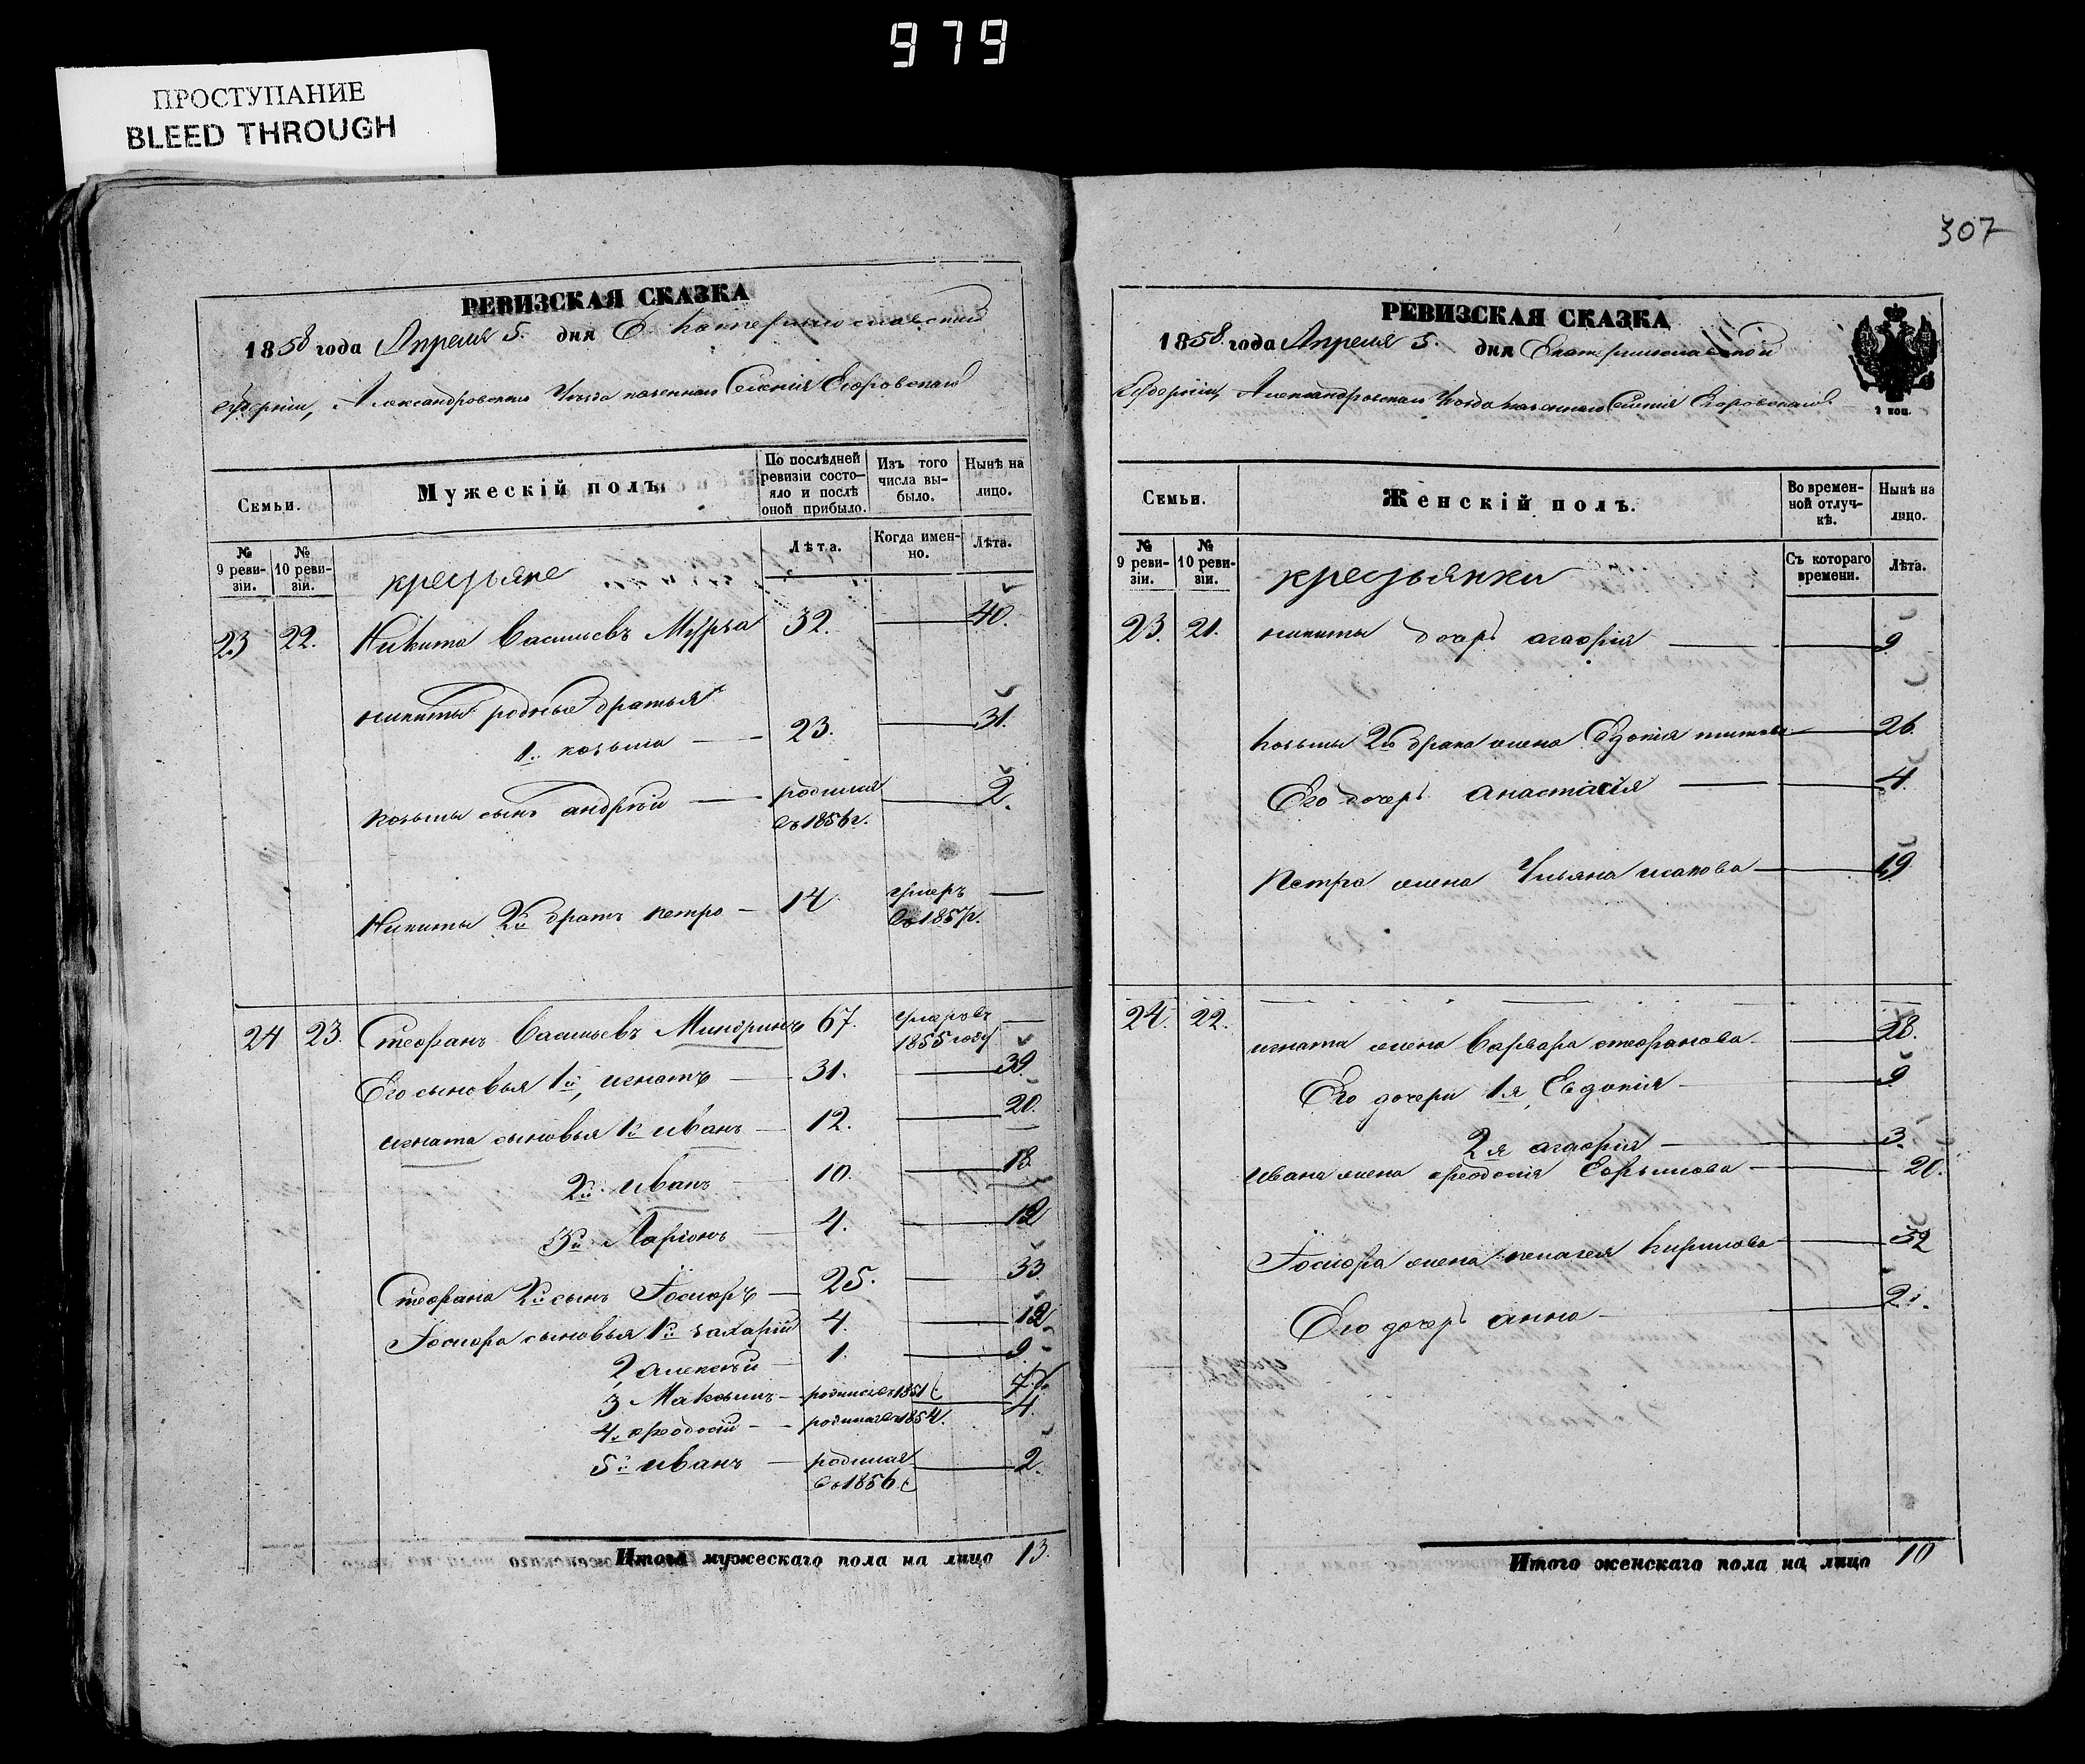 979
ПРОСТУПАНИЕ
BLEED THROUGH
РЕВИЗСКАЯ СКАЗКА
1858 года Апреля 5. дня Екатеринославской
Губернiи, Александровскаго Уѣзда казеннаго Селенiя Егоровскаго
Семьи.
Мужескiй полъ.
По послѣдней ревизiи состо-яло и послѣ оной прибыло.
Изъ того числа вы-было.
Нынѣ на лицо.
№ 9 реви-зiи.
№ 10 реви-зiи.
крестьяне
Лѣта.
Когда имен-но.
Лѣта.
23 22. Никита Васильевъ Мурза 32. 40.
никиты родные братья
1й козьма 23. 31.
козьмы сынъ андрѣй родился въ 1856 г. 2.
Никиты 2й братъ петро 14 умеръ въ 1857 г.
24 23. Стефанъ Васильевъ Миндринъ 67. умеръ въ 1855 году
Его сыновья 1й, игнатъ 31. 39.
игната сыновья 1й иванъ 12. 20.
2й иванъ 10. 18.
3й Ларiонъ 4. 12
Стефана 2й сынъ Iосифъ 25. 33.
Iосифа сыновья 1й захарiй 4. 12
2 алексѣй 1. 9
3 Максимъ родился 1851 7.
4й феодосiй родился въ 1854. 4.
5й иванъ родился въ 1856 2.
Итого мужескаго пола на лицо 13.
307
РЕВИЗСКАЯ СКАЗКА
1858 года Апреля 5. дня Екатеринославской
Губернiи, Александровскаго Уѣзда казеннаго Селенiя Егоровскаго
2 коп.
Семьи.
Женскiй полъ.
Во времен-ной отлуч-кѣ.
Нынѣ на лицо.
№ 9 реви-зiи.
№ 10 реви-зiи.
крестьянки
Съ котораго времени.
Лѣта.
23. 21. никиты дочерь агафiя 9
козьмы 2го брака жена Евдокiя титова 26.
Его дочерь анастасiя 4.
Петра жена Ульяна исакова 19
24. 22. игната жена Варвара стефанова 28.
Его дочери 1я, Евдокiя 9
2я агафiя 3.
Ивана жена феодосiя 20.
Iосифа жена пелагея Кирилова 32
Его дочерь анна 2.
Итого женскаго пола на лицо 10